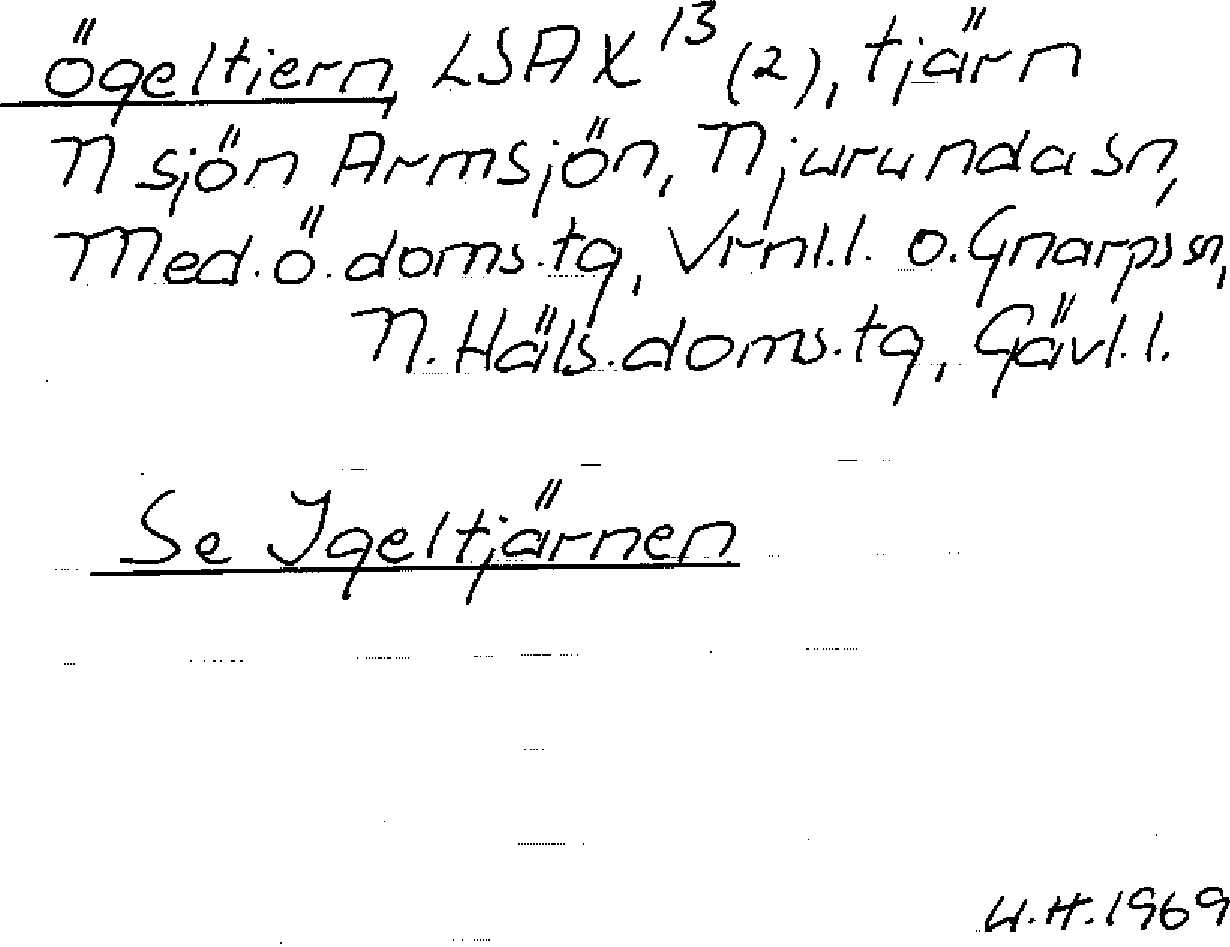 ögeltiern, LSA X 13 (2), tjärn
N sjön Armsjön, Njurunda sn,
Med.ö.doms.tg, Vrnl.l. o. Gnarps sn,
N.Häls.doms.tg, Gävl.l.
Se Igeltjärnen
U.H.1969